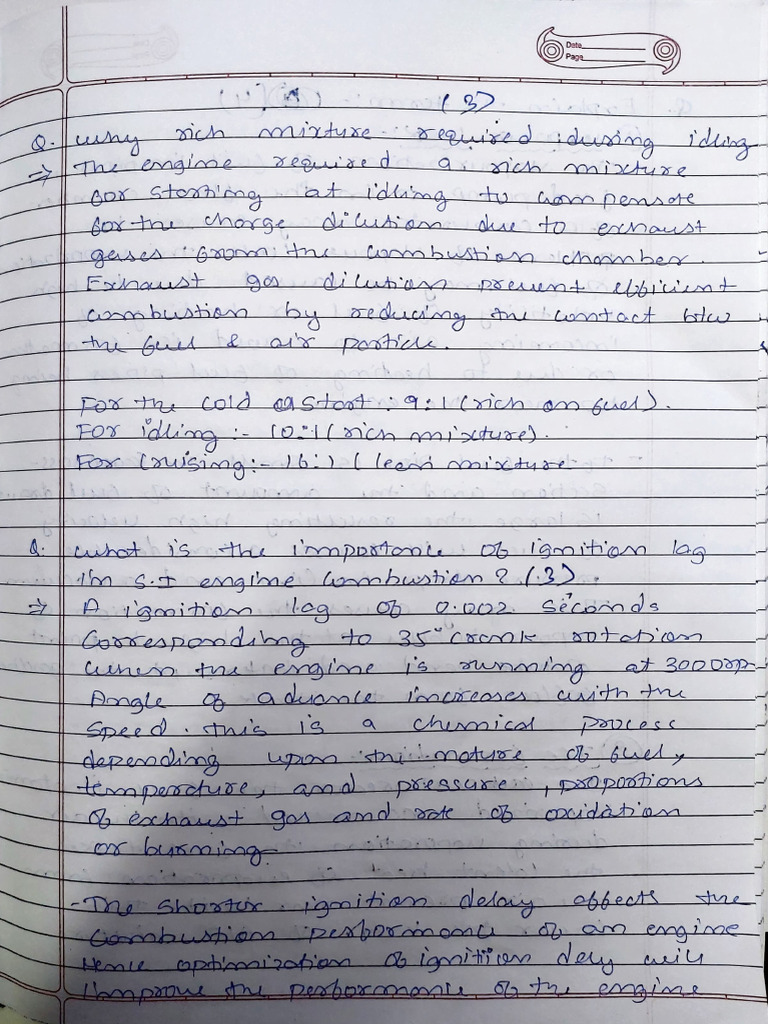 Date
Page
(3)
Q. why rich mixture required during idling
⇒ The engine required a rich mixture
for starting at idling to compensate
for the charge dilution due to exhaust
gases from the combustion chamber.
Exhaust gas dilution prevent efficient
combustion by reducing the contact btw
the fuel & air particle.
For the cold start : 9:1 (rich on fuel).
For idling :- 10:1 (rich mixture).
For Cruising :- 16:1 (lean mixture
Q. what is the importance of ignition lag
in S.I engine combustion? (3)
⇒ A ignition lag of 0.002 seconds
Corresponding to 35° crank rotation
when the engine is running at 3000rp
Angle of advance increases with the
speed. this is a chemical process
depending upon the nature of fuel,
temperature, and pressure, proportions
of exhaust gas and rate of oxidation
or burning
- The shorter ignition delay affects the
combustion performance of an engine
Hence optimization of ignition dely will
improve the performance of the engine